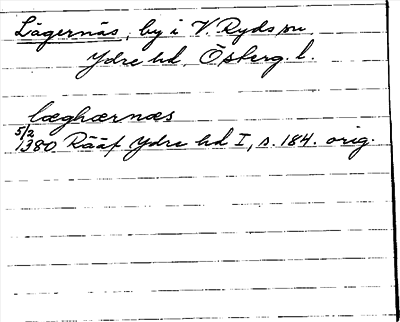 Lägernäs, by i V. Ryds sn
Ydre hd. Österg. l.
læghærnæs
5/2 1380 Rääf Ydre hd I, s. 184. orig.